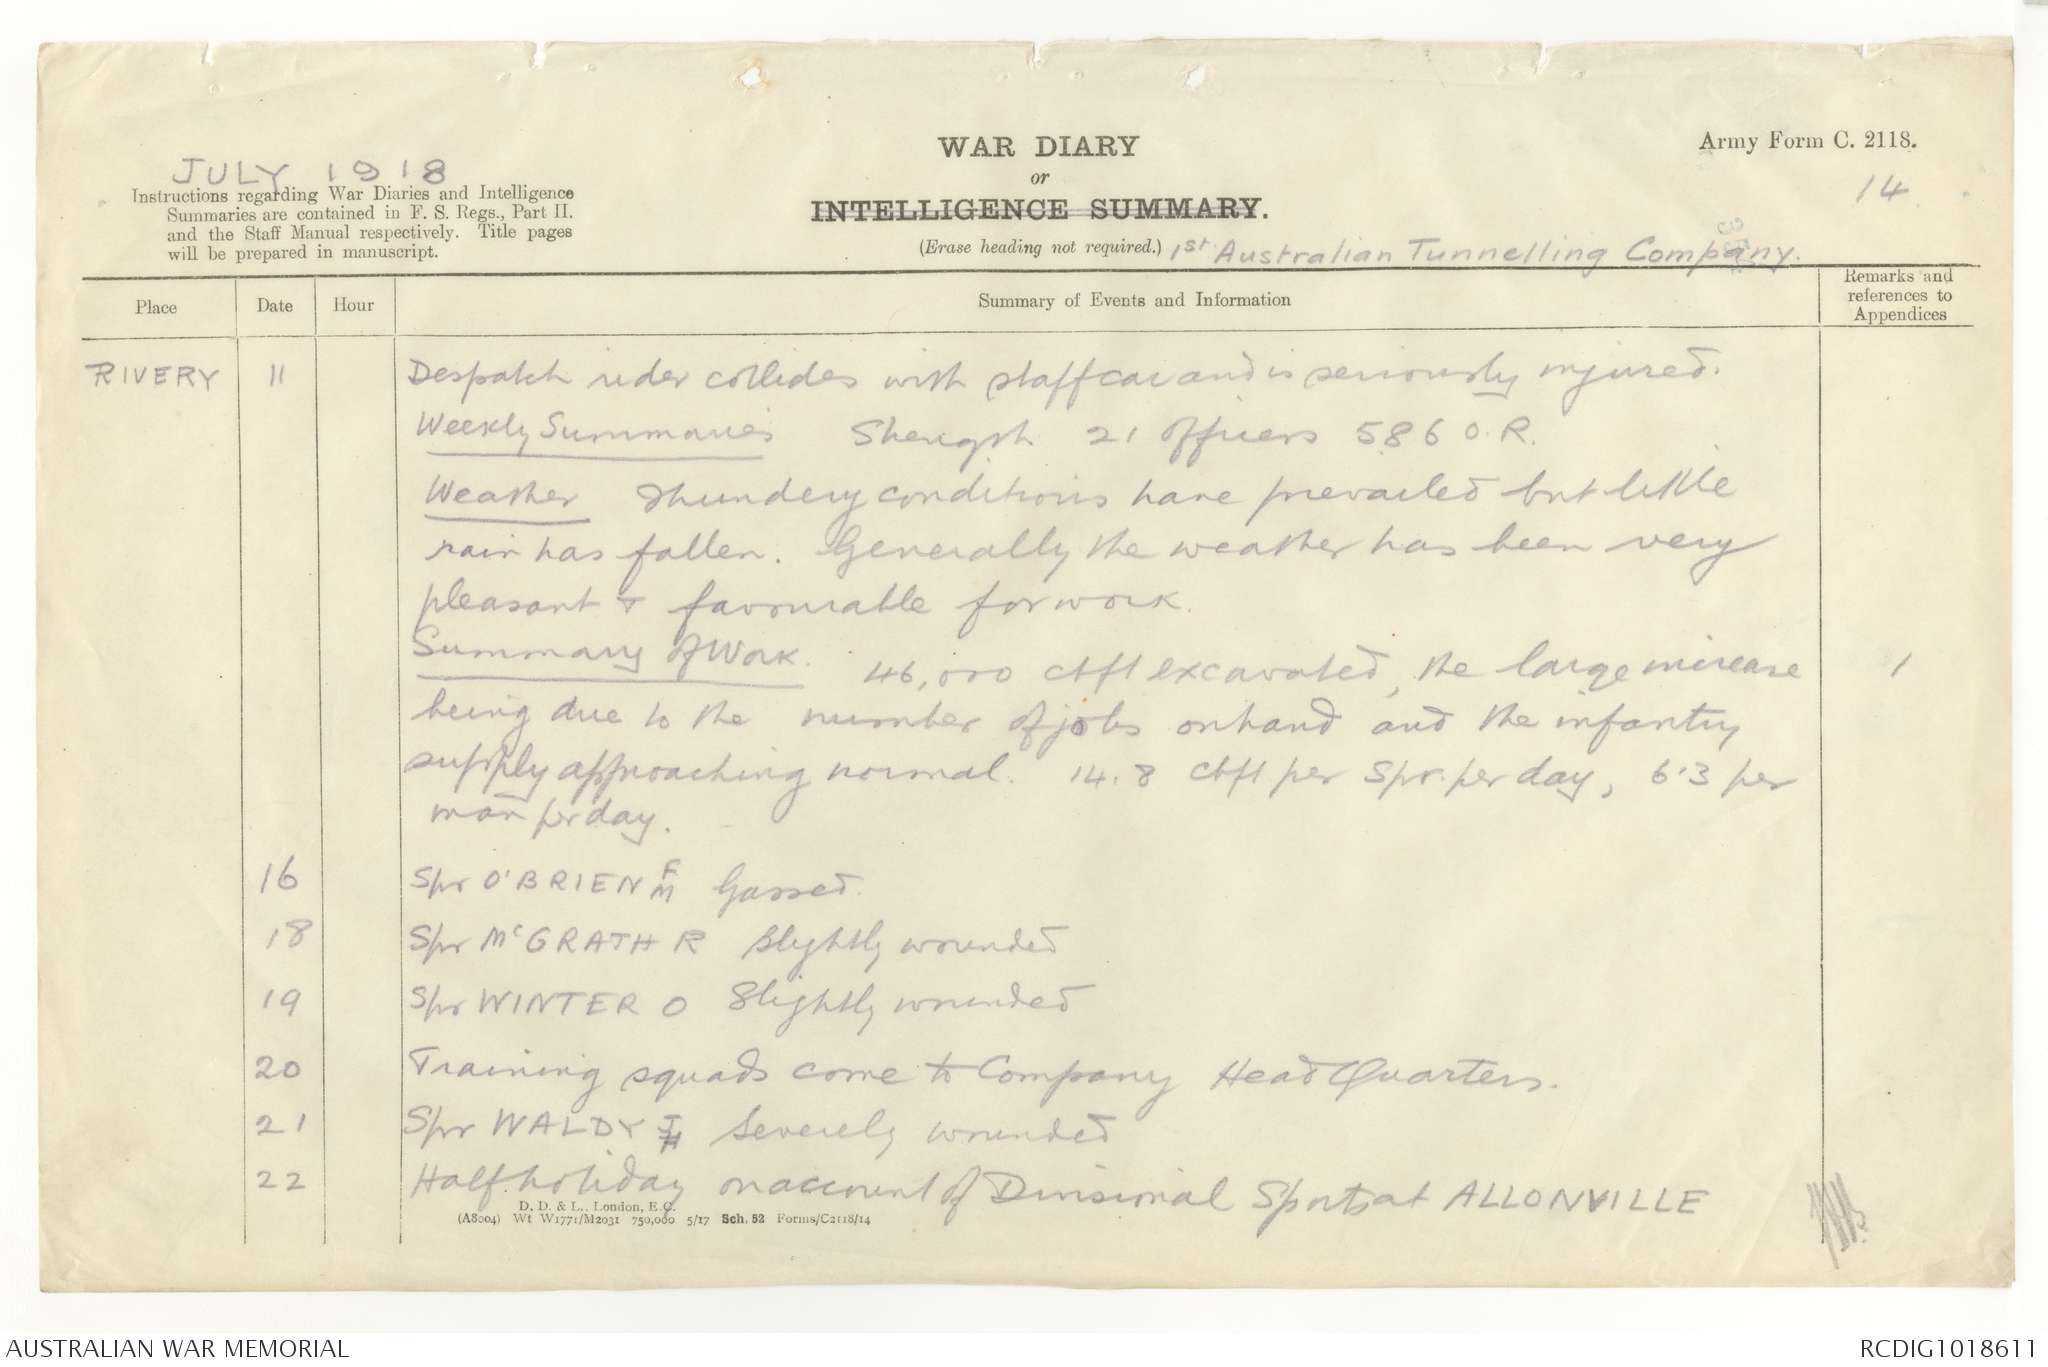 WAR DIARY
or
INTELLIGENCE SUMMARY.
(Erase heading not required.) 1st Australian Tunnelling Company.
Army Form C. 2118.
14
JULY 1918
Instructions regarding War Diaries and Intelligence
Summaries are contained in F. S. Regs., Part II.
and the Staff Manual respectively. Title pages
will be prepared in manuscript.
Place Date Hour Summary of Events and Information Remarks and
references to
Appendices
RIVERY 11 Despatch rider collides with staff car and is seriously injured.
Weekly Summaries Strength 21 Officers 586 O.R.
Weather Thundery conditions have prevailed but little
rain has fallen. Generally the weather has been very
pleasant & favourable for work.
Summary of Work. 46,000 cbft excavated, the large increase 1
being due to the number of jobs on hand and the infantry
supply approaching normal. 14.8 cbft per Spr. per day, 6.3 per
man per day.
16 Spr O'BRIEN F M Gassed.
18 Spr McGRATH R Slightly wounded
19 Spr WINTER O Slightly wounded
20 Training squads come to Company Head Quarters.
21 Spr WALDY J H Severely wounded
22 Half holiday on account of Divisional Sports at ALLONVILLE
D. D. & L., London, E.C.
(A8004) Wt W1771/M2031 750,000 5/17 Sch. 52 Forms/C2118/14
AUSTRALIAN WAR MEMORIAL RCDIG1018611